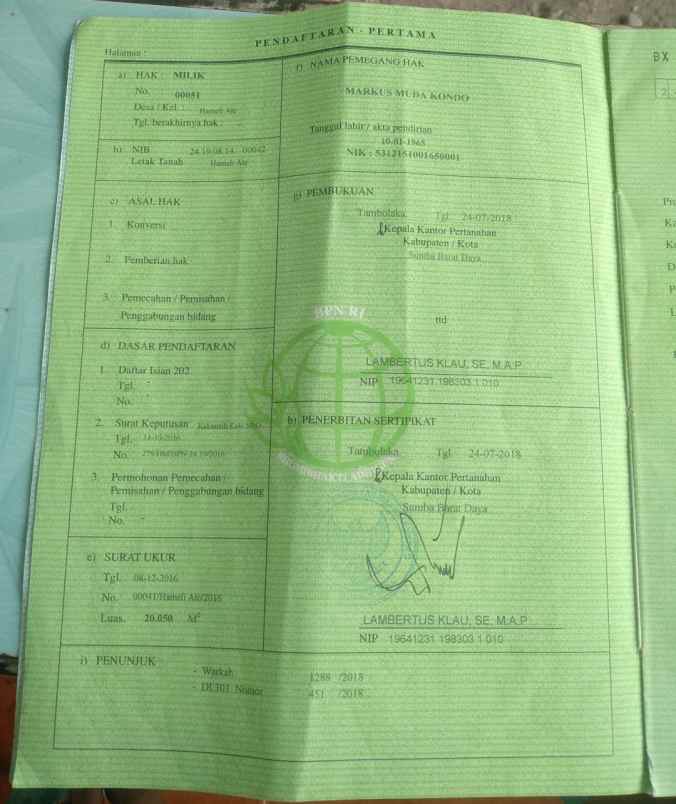 PENDAFTARAN - PERTAMA
Halaman :
a) HAK : MILIK
No. 00051
Desa / Kel. : Hameli Ate
Tgl. berakhirnya hak :
b) NIB 24.19.08.14. 00042
Letak Tanah Hameli Ate
c) ASAL HAK
1. Konversi
2. Pemberian hak
3. Pemecahan / Pemisahan /
Penggabungan bidang
d) DASAR PENDAFTARAN
1. Daftar Isian 202
Tgl. -
No. -
2. Surat Keputusan
Tgl. 14-10-2016
No.
3. Permohonan Pemecahan /
Pemisahan / Penggabungan bidang
Tgl.
No.
e) SURAT UKUR
Tgl. 08-12-2016
No. 00041/Hameli Ate/2016
Luas. 20.050 M²
f) NAMA PEMEGANG HAK
MARKUS MUDA KONDO
Tanggal lahir / akta pendirian
10-01-1965
NIK : 5312151001650001
g) PEMBUKUAN
Tambolaka, Tgl. 24-07-2018
Kepala Kantor Pertanahan
Kabupaten / Kota
Sumba Barat Daya
ttd
LAMBERTUS KLAU, SE, M.A.P
NIP 19641231 198303 1 010
h) PENERBITAN SERTIPIKAT
Tambolaka, Tgl. 24-07-2018
Kepala Kantor Pertanahan
Kabupaten / Kota
Sumba Barat Daya
LAMBERTUS KLAU, SE, M.A.P
NIP 19641231 198303 1 010
i) PENUNJUK
- Warkah 1288 /2018
- DI.301 Nomor 451 /2018
BPN RI
BX
2